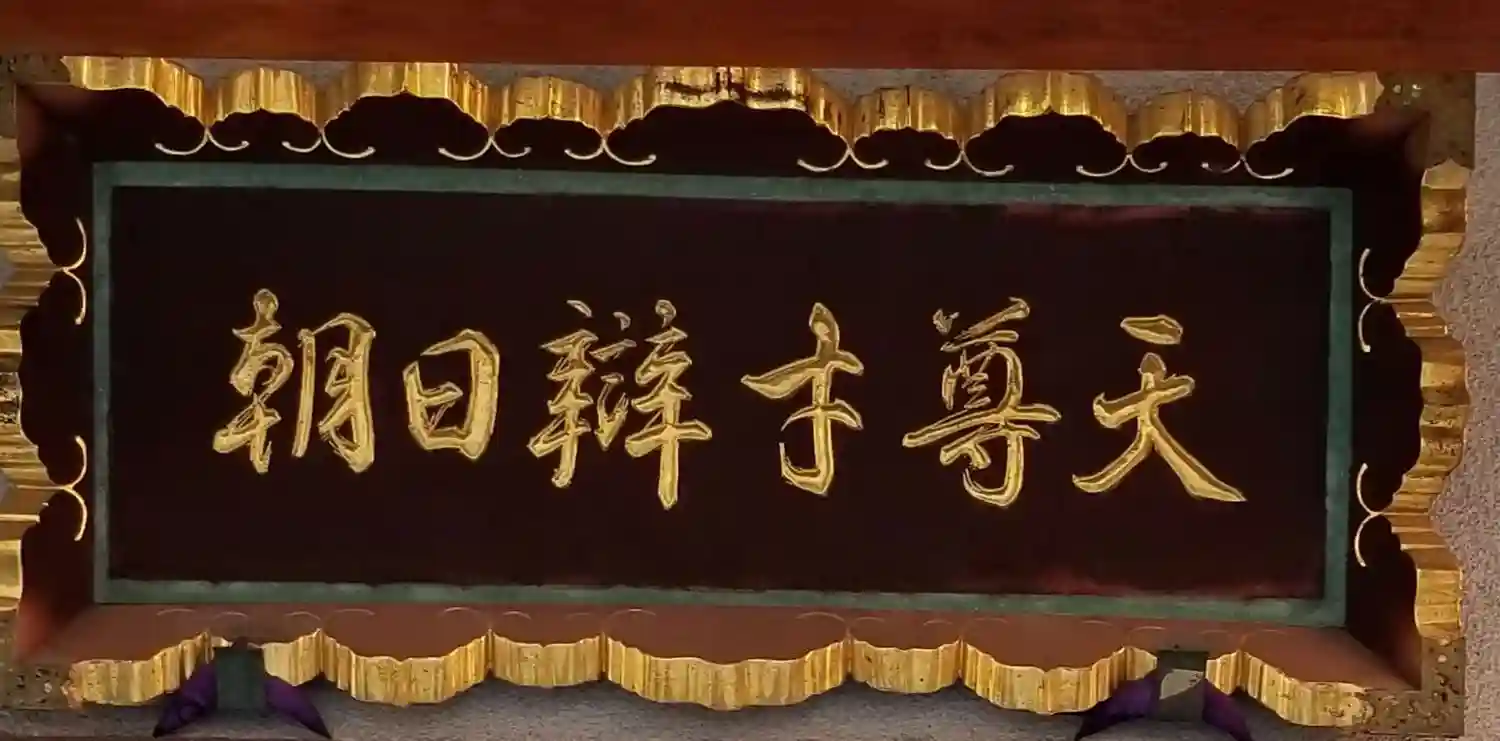 朝日辯才尊天